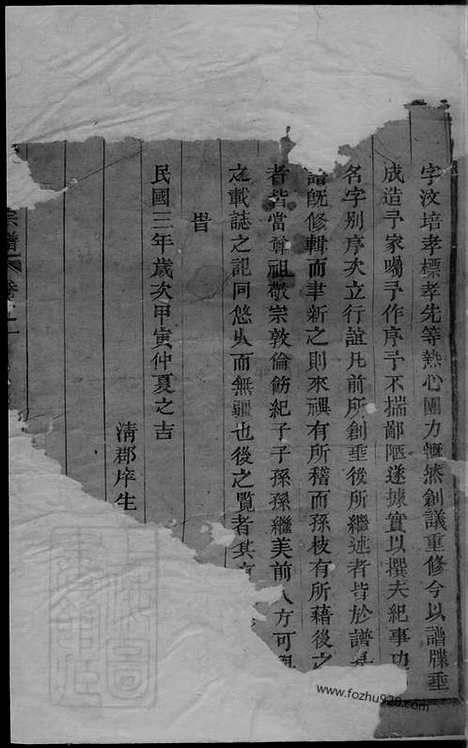 字汶培孝標孝先等熱心團力慨然創議重修今以譜牒垂
成造予家囑予作序予不揣鄙陋遂據實以撰夫紀事功
名字別序次立行誼凡前所創垂後所繼述者皆於譜
譜既修輯而聿新之則來禩有所稽而孫枝有所藉後之
者皆當尊祖敬宗敦倫飭紀子子孫孫繼美前人方可
之載誌之記同悠久而無疆也後之覽者其
旹
民國三年歲次甲寅仲夏之吉
清郡庠生
宗譜 卷之一
www.fozhu920.com